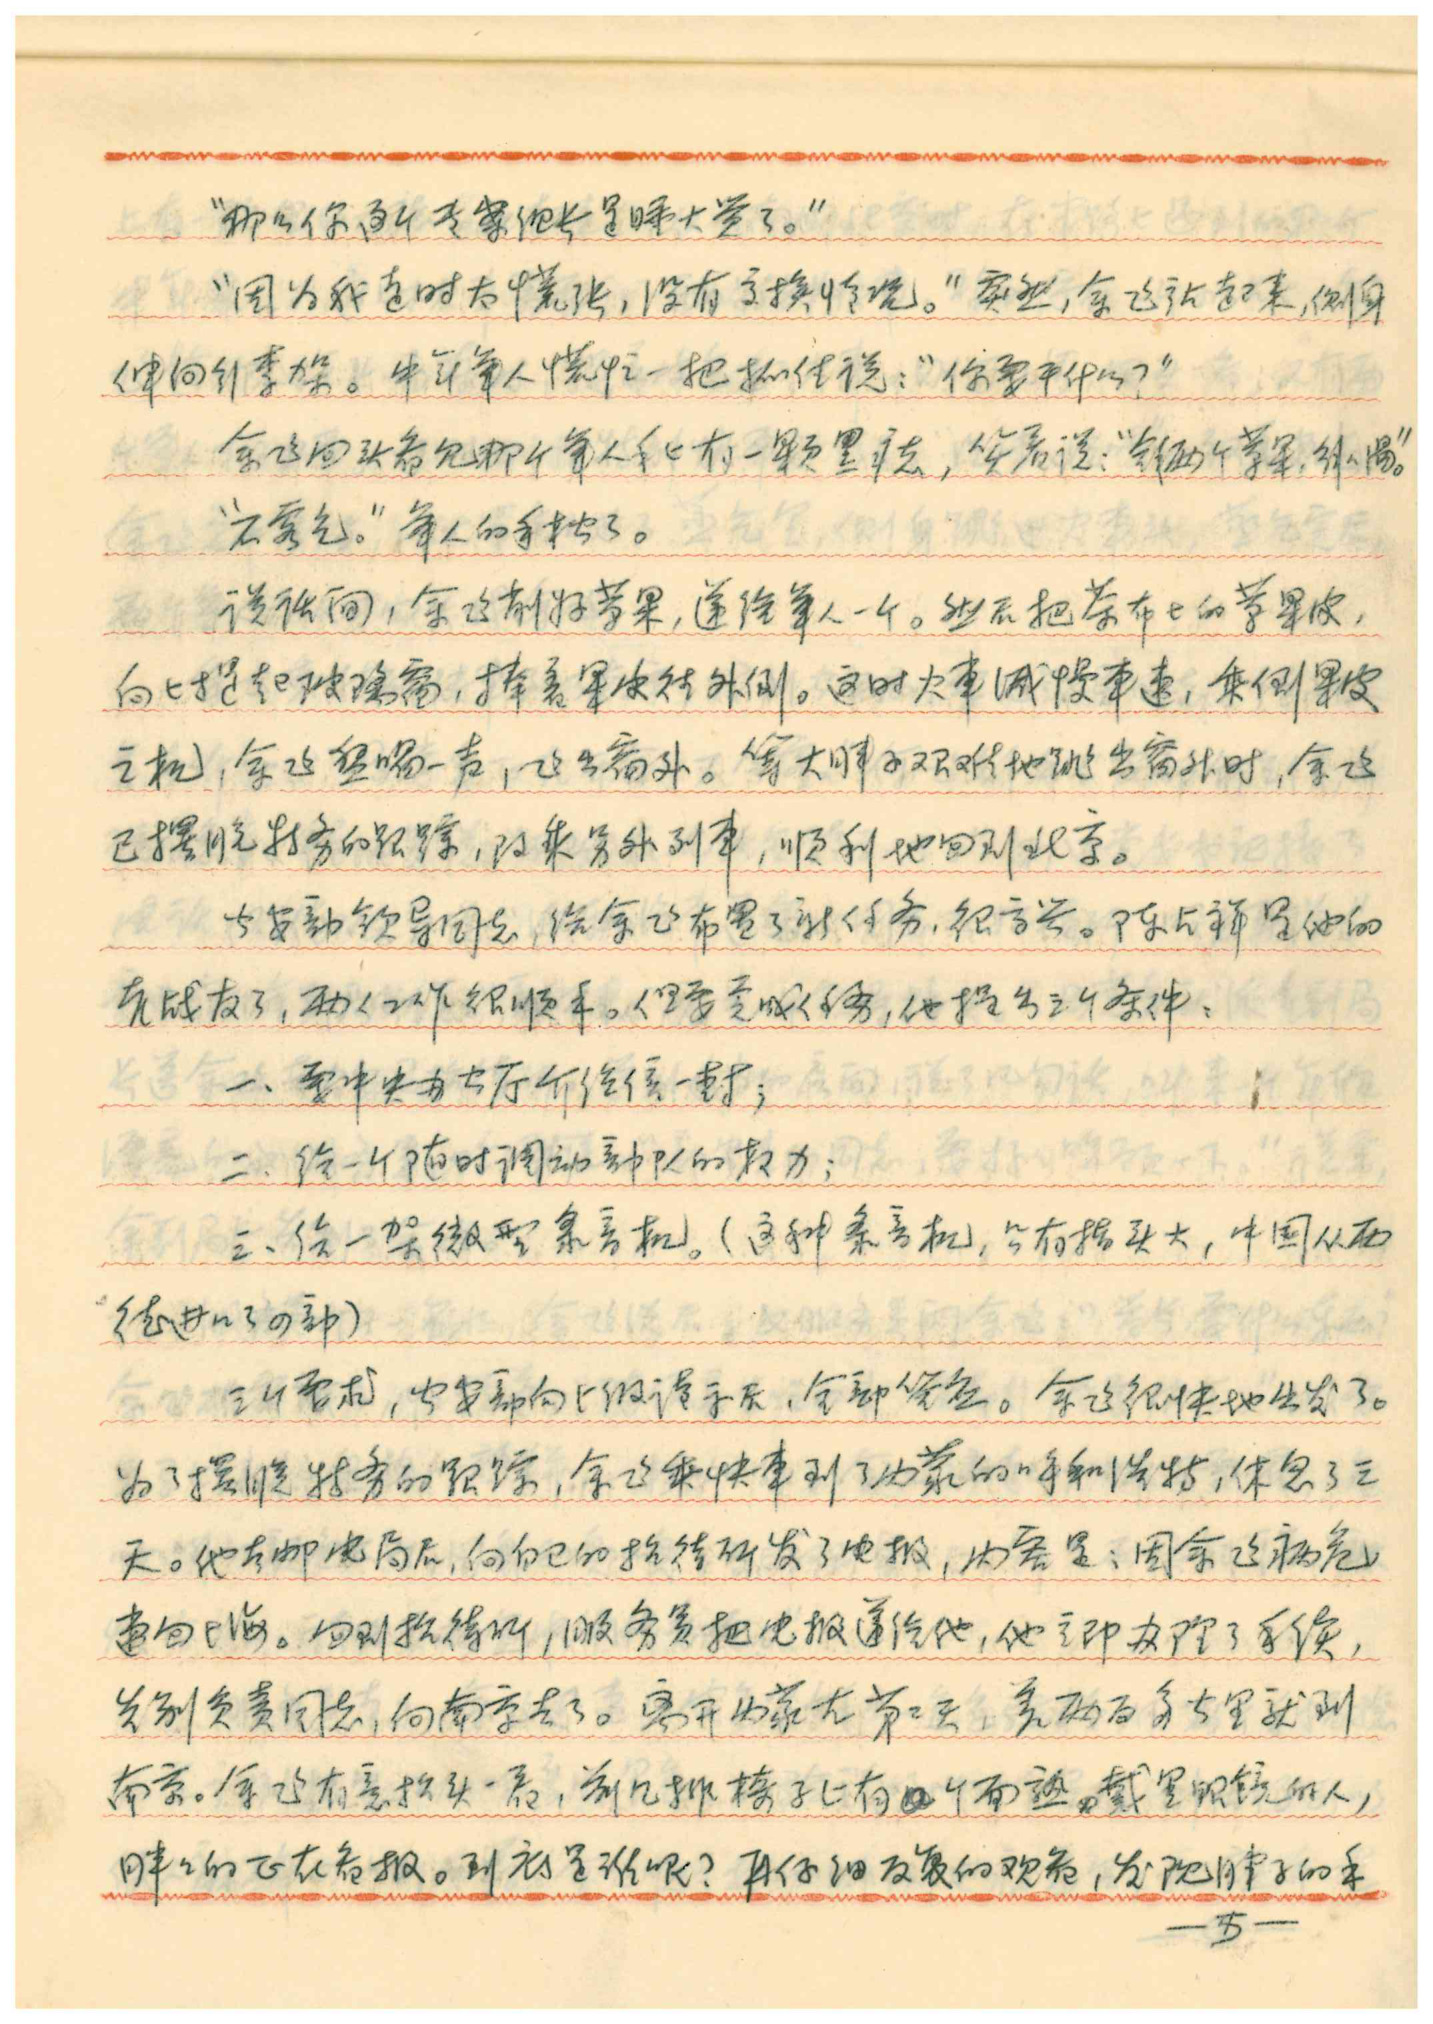 “那么你这个专案组长是睡大觉了。”
“因为我走时太慌张，没有交换情况。”突然，余飞站起来，侧身
伸向行李架。中年军人慌忙一把抓住说：“你要干什么？”
余飞回头看见那个军人手上有一颗黑痣，笑着说：“拿两个苹果，解解渴。”
“不客气。”军人的手松了。
说话间，余飞削好苹果，递给军人一个。然后把茶布上的苹果皮，
向上提起玻璃窗，捧着果皮往外倒。这时火车减慢车速，乘倒果皮
之机，余飞 一声，飞出窗外。等大胖子艰难地跳出窗外时，余飞
已摆脱特务的跟踪，改乘另外列车，顺利地回到北京。
公安部领导同志，给余飞布置了新任务，很高兴。陈占祥是他的
老战友了，两人工作很顺手。但要完成任务，他提出三个条件：
一、要中央办公厅介绍信一封；
二、给一个随时调动部队的权力；
三、给一架微型录音机。（这种录音机，只有指头大，中国从西
德进口了四部）
三个要求，公安部向上级请示后，全部答应。余飞很快地出发了。
为了摆脱特务的跟踪，余飞乘快车到了内蒙的呼和浩特，休息了三
天。他去邮电局后，向自己的招待所发了电报，内容是：因余飞病危
速回上海。回到招待所，服务员把电报递给他，他立即办理了手续，
告别负责同志，向南京去了。离开内蒙古第二天，差两百多公里就到
南京。余飞有意抬头一看，前几排椅子上有个面熟戴黑眼镜的人，
胖胖的正在看报。到底是谁呢？再仔细反复的观看，发现胖子的手
—5—